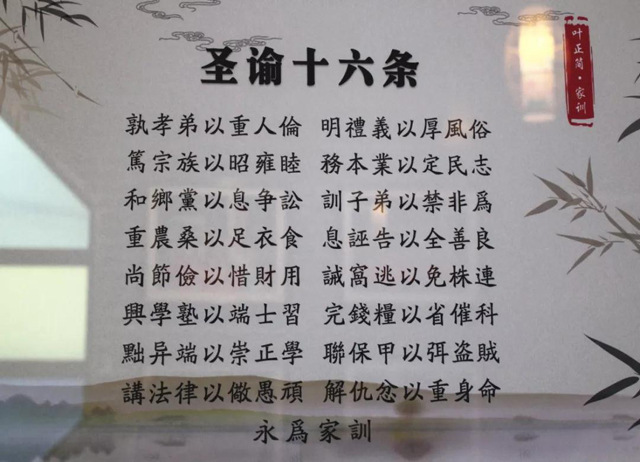 圣谕十六条
叶正简·家训
孰孝弟以重人倫 明禮義以厚風俗
篤宗族以昭雍睦 務本業以定民志
和鄉黨以息争訟 訓子弟以禁非爲
重農桑以足衣食 息誣告以全善良
尚節儉以惜財用 誡窩逃以免株連
興學塾以端士習 完錢糧以省催科
黜异端以崇正學 聯保甲以弭盗賊
講法律以儆愚頑 解仇忿以重身命
永爲家訓